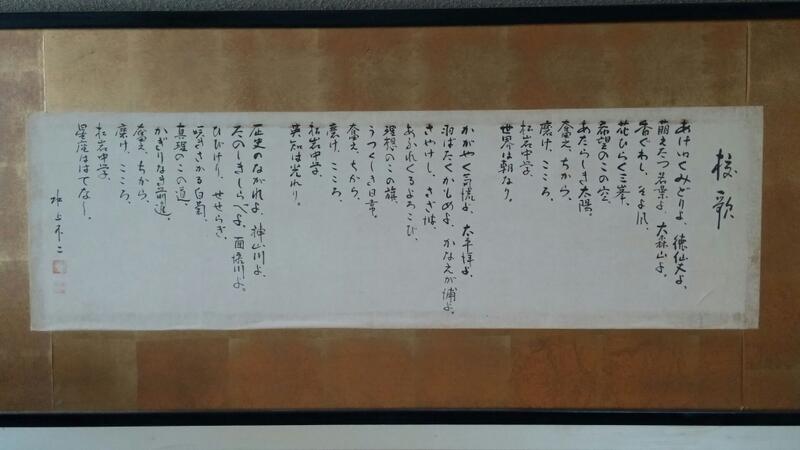 校歌
あけゆくみどりよ、徳仙丈よ、
萌えたつ若葉よ、大森山よ。
香ぐわし、そよ風、
花ひらく三峯、
希望のこの空、
あたらしき太陽。
奮え、ちから、
磨け、こころ、
松岩中学、
世界は朝なり。
かがやく気流よ、太平洋よ、
羽ばたくかもめよ、かなえが浦よ。
きやけし、さざ波、
あふれくるよろこび、
理想のこの旗、
うつくしき日章。
奮え、ちから、
磨け、こころ、
松岩中学、
英知は光れり。
歴史のながれよ、神山川よ、
たのしきしらべよ、面瀬川よ。
ひびけり、せせらぎ、
咲きさかる白菊、
真理のこの道、
かぎりなき前進。
奮え、ちから、
磨け、こころ、
松岩中学、
星座ははてなし。
水上不二